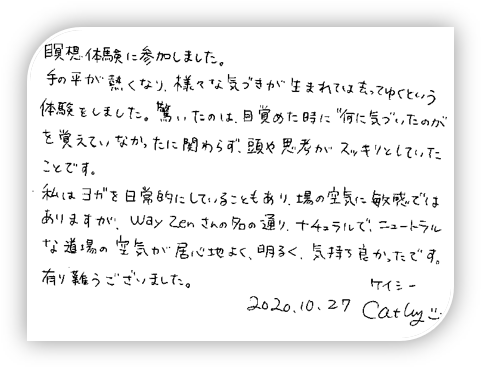 瞑想体験に参加しました。
手の平が熱くなり、様々な気づきが生まれては去ってゆくという
体験をしました。驚いたのは、目覚めた時に"何に気づいたのか"
を覚えていなかったに関わらず、頭や思考がスッキリとしていた
ことです。
私はヨガを日常的にしていることもあり、場の空気に敏感では
ありますが、Way Zenさんの名の通り、ナチュラルで、ニュートラル
な道場の空気が居心地よく、明るく、気持ち良かったです。
有り難うございました。
ケイシー
2020.10.27 Cathy